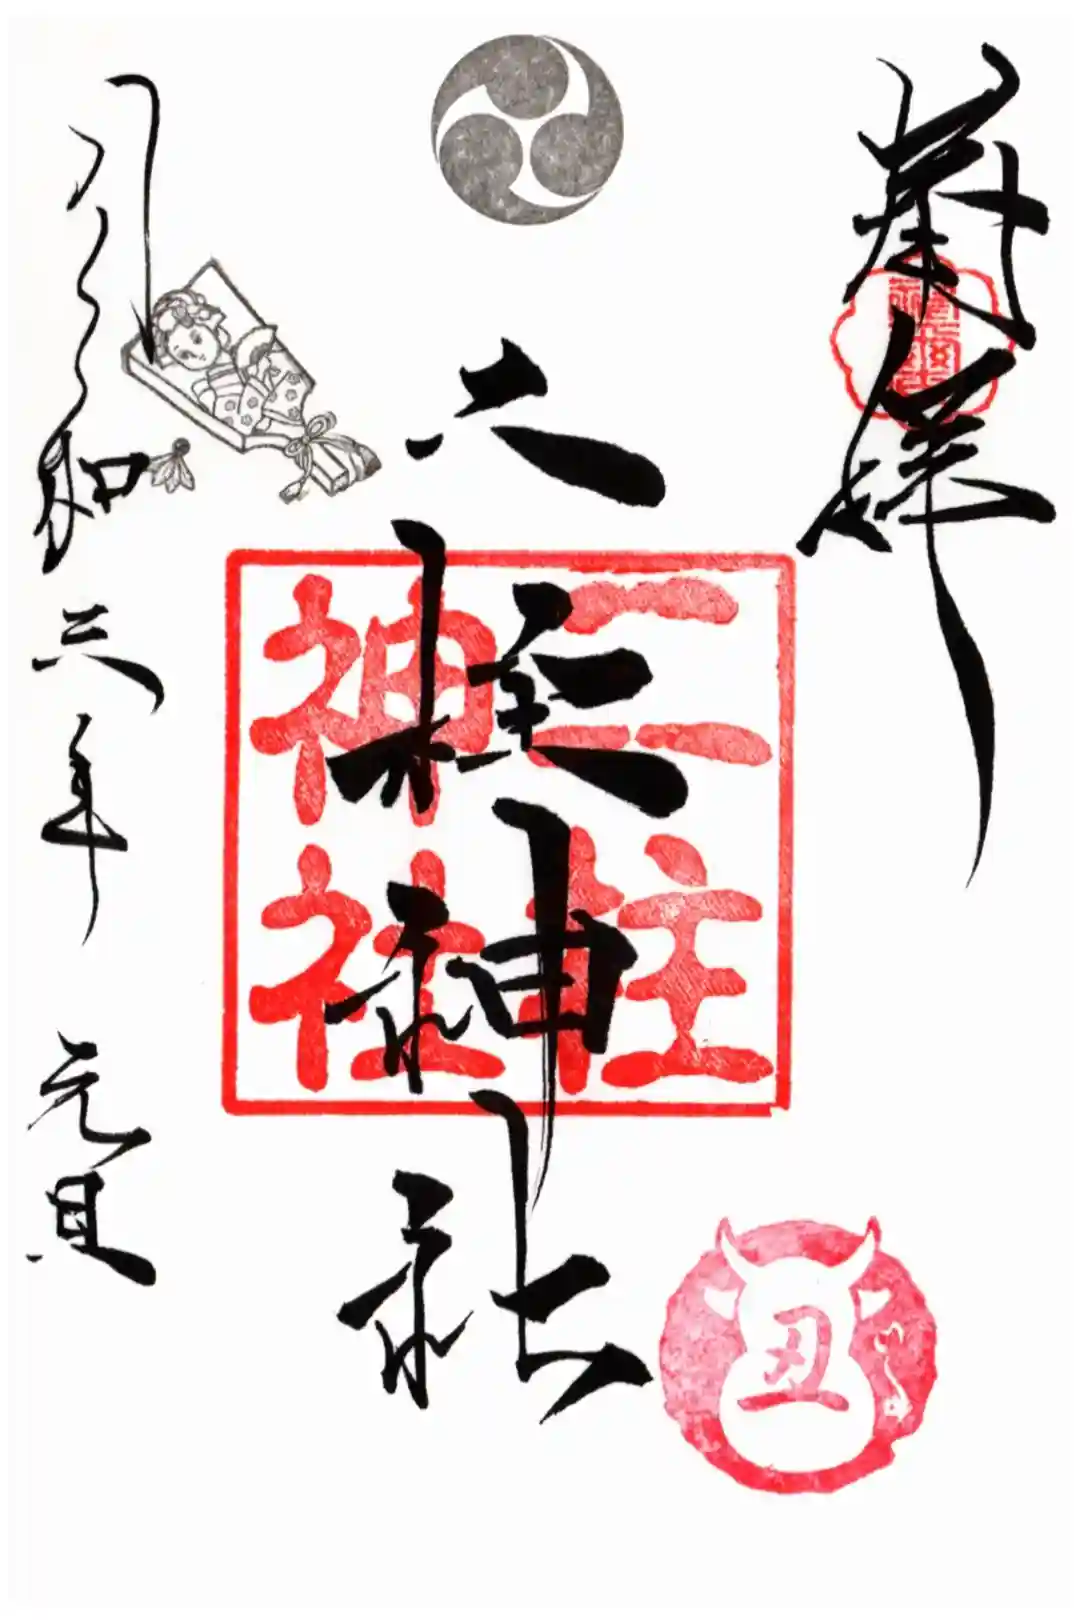 奉拝
三柱神社
三柱
神社
丑
令和三年 元旦